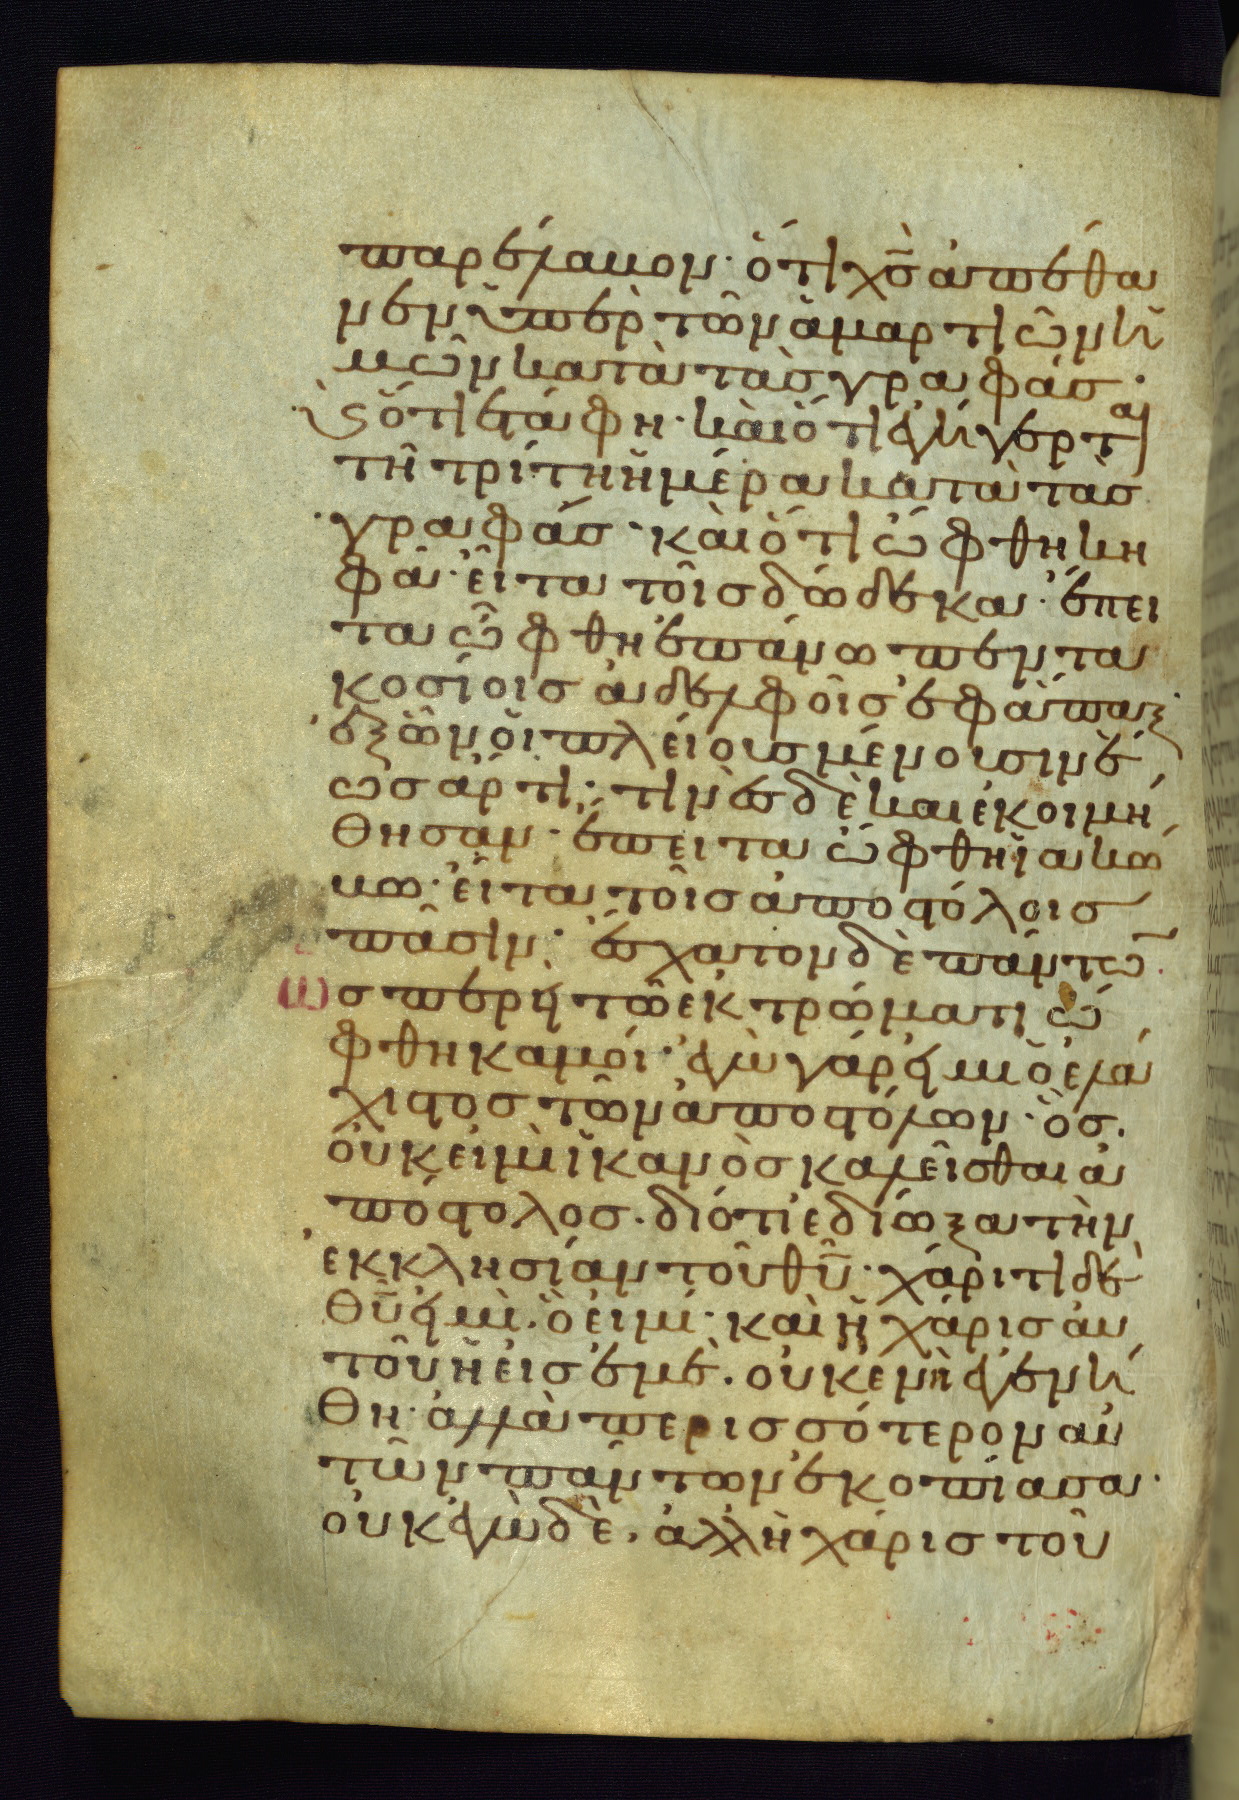 παρέλαβον· ὅτι χ̅ς̅ ἀπέθα
νεν ὑπὲρ τῶν ἁμαρτιῶν ἡ
μῶν κατὰ τὰσ γραφάσ·
ϗ ὅτι ἐτάφη· καὶ ὅτι ἐγήγερται
τῆ τρίτη ἡμέρα κατὰ τὰσ
γραφάσ· καὶ ὅτι ὤφθη κη
φᾶ· εἶτα τοῖσ δώδεκα· ἔπει
τα ὤφθη ἐπάνω πεντα
κοσίοισ ἀδελφοῖσ ἐφάπαξ·
ἐξ ὧν οἱ πλείουσ μένουσιν ἕ
ωσ ἄρτι· τινὲσ δὲ καὶ ἐκοιμή
θησαν· ἔπειτα ὤφθη ϊακώ
βω· εἶτα τοῖσ ἀποστόλοισ
πᾶσιν· ἔσχατον δὲ πάντω̅·
ὡσπερὴ τῶ ἐκτρώματι ὤ
φθη καμοί· ἐγὼ γάρ εἰμι ὁ ἐλά
χιστοσ τῶν ἀποστόλων· ὃσ
οὐκ εἰμὶ ϊκανὸσ καλεῖσθαι ἀ
πόστολοσ· διότι ἐδίωξα τὴν
ἐκκλησίαν τοῦ θ̅υ̅· χάριτι δὲ
θ̅υ̅ εἰμὶ ὅ εἰμι· καὶ ἡ χάρισ αὐ
τοῦ ἡ εἰσ ἐμὲ· οὐ κενὴ ἐγενή
θη· ἀλλὰ περισσότερον αὐ
τῶν πάντων ἐκοπίασα·
οὐκ ἐγὼ δὲ· ἀλλ' ἡ χάρισ τοῦ